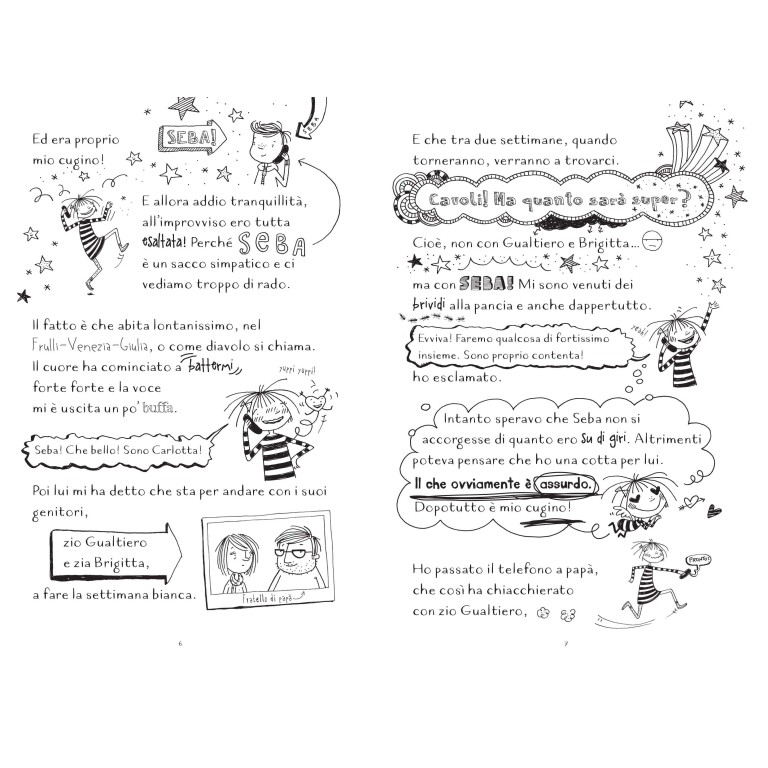 Ed era proprio
mio cugino!
SEBA!
SEBA
E allora addio tranquillità,
all'improvviso ero tutta
esaltata! Perché SEBA
è un sacco simpatico e ci
vediamo troppo di rado.
Il fatto è che abita lontanissimo, nel
Frulli-Venezia-Giulia, o come diavolo si chiama.
Il cuore ha cominciato a battermi
forte forte e la voce
mi è uscita un po' buffa.
yuppi yuppi!
Seba! Che bello! Sono Carlotta!
Poi lui mi ha detto che sta per andare con i suoi
genitori,
zio Gualtiero
e zia Brigitta,
Fratello di papà
a fare la settimana bianca.
6
E che tra due settimane, quando
torneranno, verranno a trovarci.
Cavoli! Ma quanto sarà super?
Cioè, non con Gualtiero e Brigitta...
ma con SEBA! Mi sono venuti dei
brividi alla pancia e anche dappertutto.
Evviva! Faremo qualcosa di fortissimo
insieme. Sono proprio contenta!
yeah!
ho esclamato.
Intanto speravo che Seba non si
accorgesse di quanto ero su di giri. Altrimenti
poteva pensare che ho una cotta per lui.
Il che ovviamente è assurdo.
Dopotutto è mio cugino!
Ho passato il telefono a papà,
che così ha chiacchierato
con zio Gualtiero,
PRONTO?
7